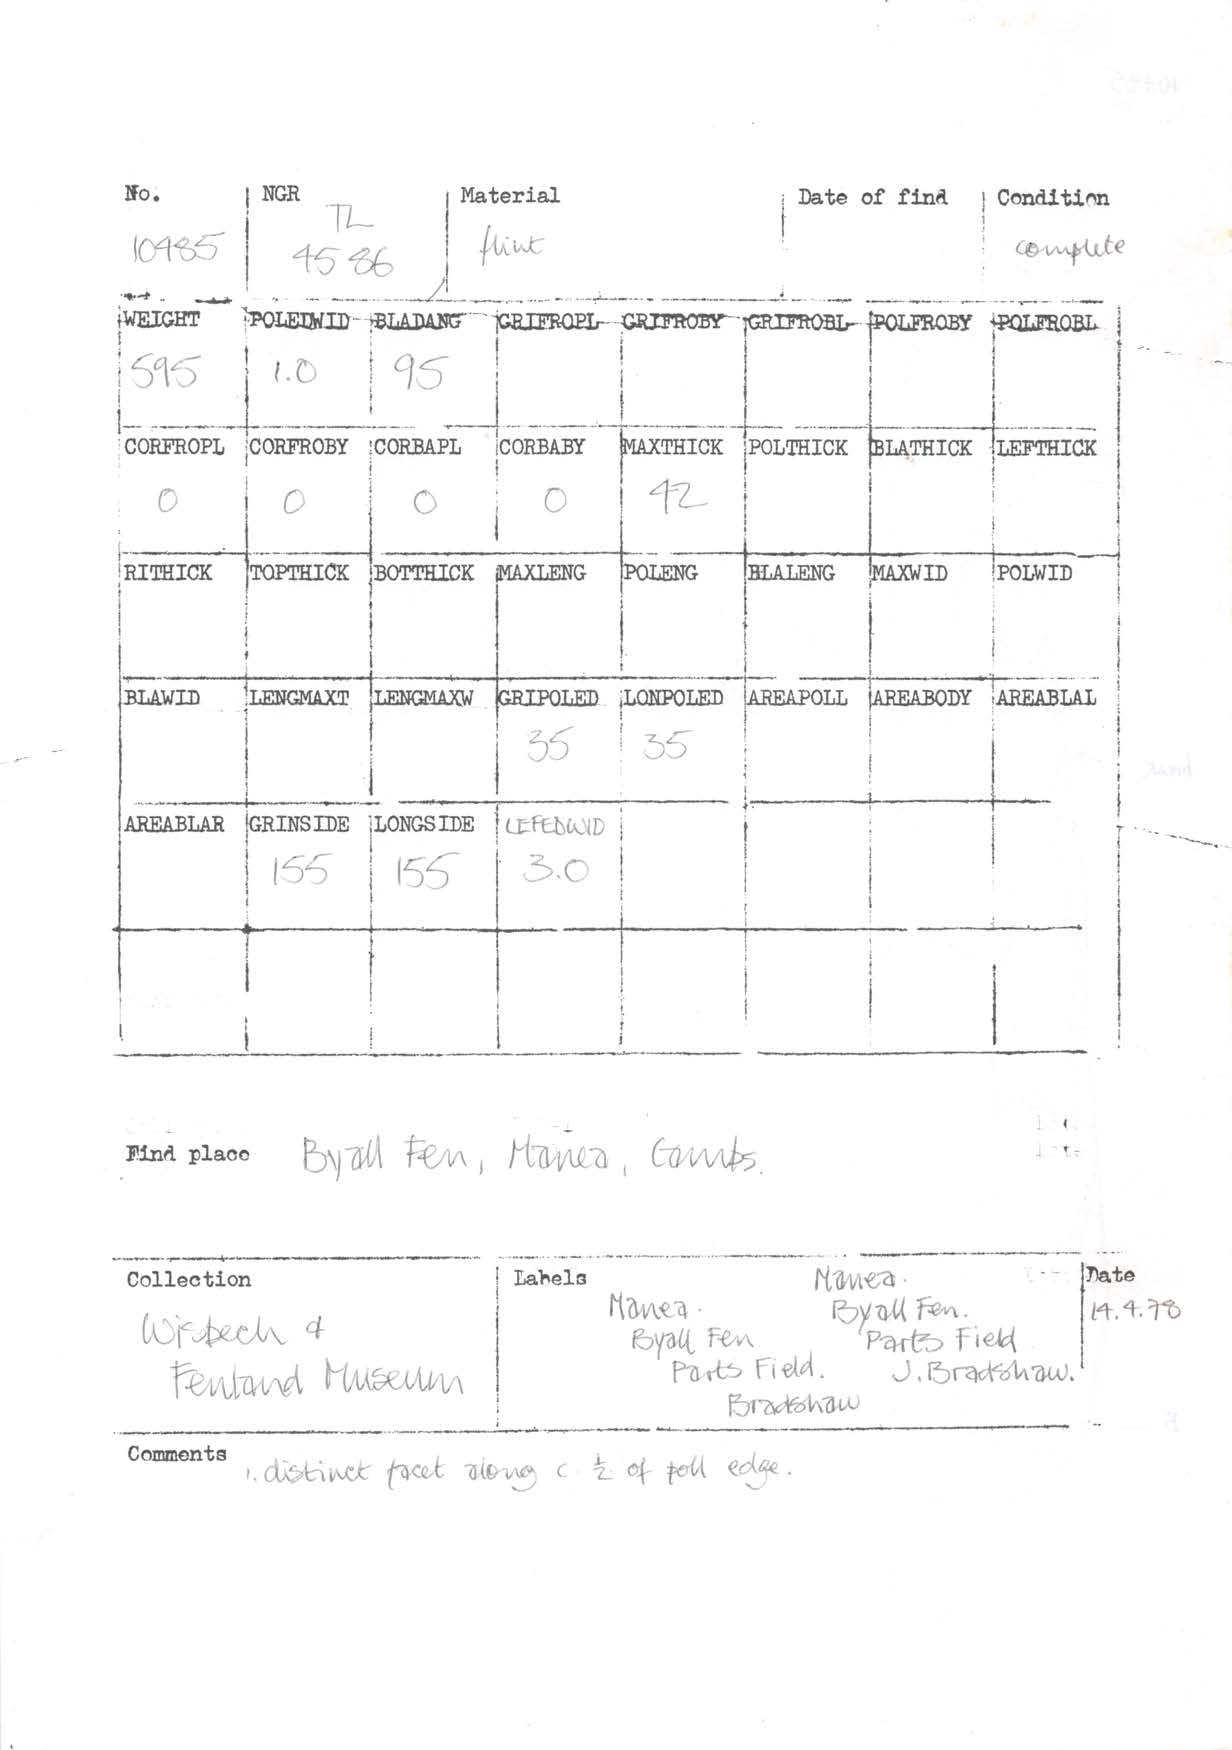 No. NGR Material Date of find Condition
TL
10485 4586 flint complete
WEIGHT POLEDWID BLADANG GRIFROPL GRIFROBY GRIFROBL POLFROBY POLFROBL
595 1.0 95
CORFROPL CORFROBY CORBAPL CORBABY MAXTHICK POLTHICK BLATHICK LEFTHICK
0 0 0 0 42
RITHICK TOPTHICK BOTTHICK MAXLENG POLENG BLALENG MAXWID POLWID
BLAWID LENGMAXT LENGMAXW GRIPOLED LONPOLED AREAPOLL AREABODY AREABLAL
35 35
AREABLAR GRINSIDE LONGSIDE LEFEDWID
155 155 3.0
Find place Byall Fen, Manea, Cambs.
Collection
Wisbech &
Fenland Museum
Labels
Manea.
Byall Fen
Parts Field.
Bradshaw
Manea.
Byall Fen.
Parts Field
J. Bradshaw.
Date
14.4.78
Comments 1. distinct facet along c. ½ of poll edge.